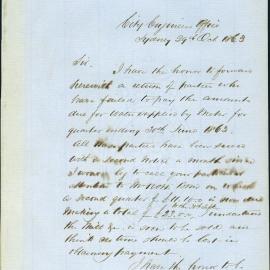 City Engineers Office
Sydney 29th Oct 1863
Sir.
I have the honor to forward
herewith a return of parties who
have failed to pay the amounts
due for water supplied by Meter for
quarter ending 30th June 1863.
All these parties have been served
with a second notice a month since
I would beg to call your particular
attention to on which
a second quarter £11.10.0 is now due
making a total £23.0.0 I understand
the Mill is soon to be sold and
think no time should be lost in
obtaining payment.
I have the honor to be